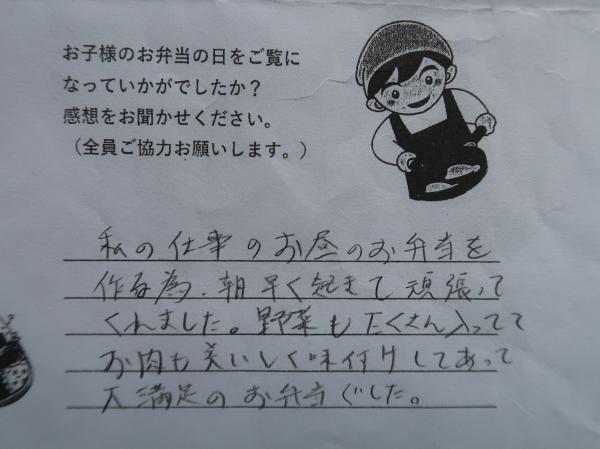 お子様のお弁当の日をご覧に
なっていかがでしたか？
感想をお聞かせください。
（全員ご協力お願いします。）
私の仕事のお昼のお弁当を
作る為、朝早く起きて頑張って
くれました。野菜もたくさん入ってて
お肉も美いしく味付けしてあって
大満足のお弁当でした。